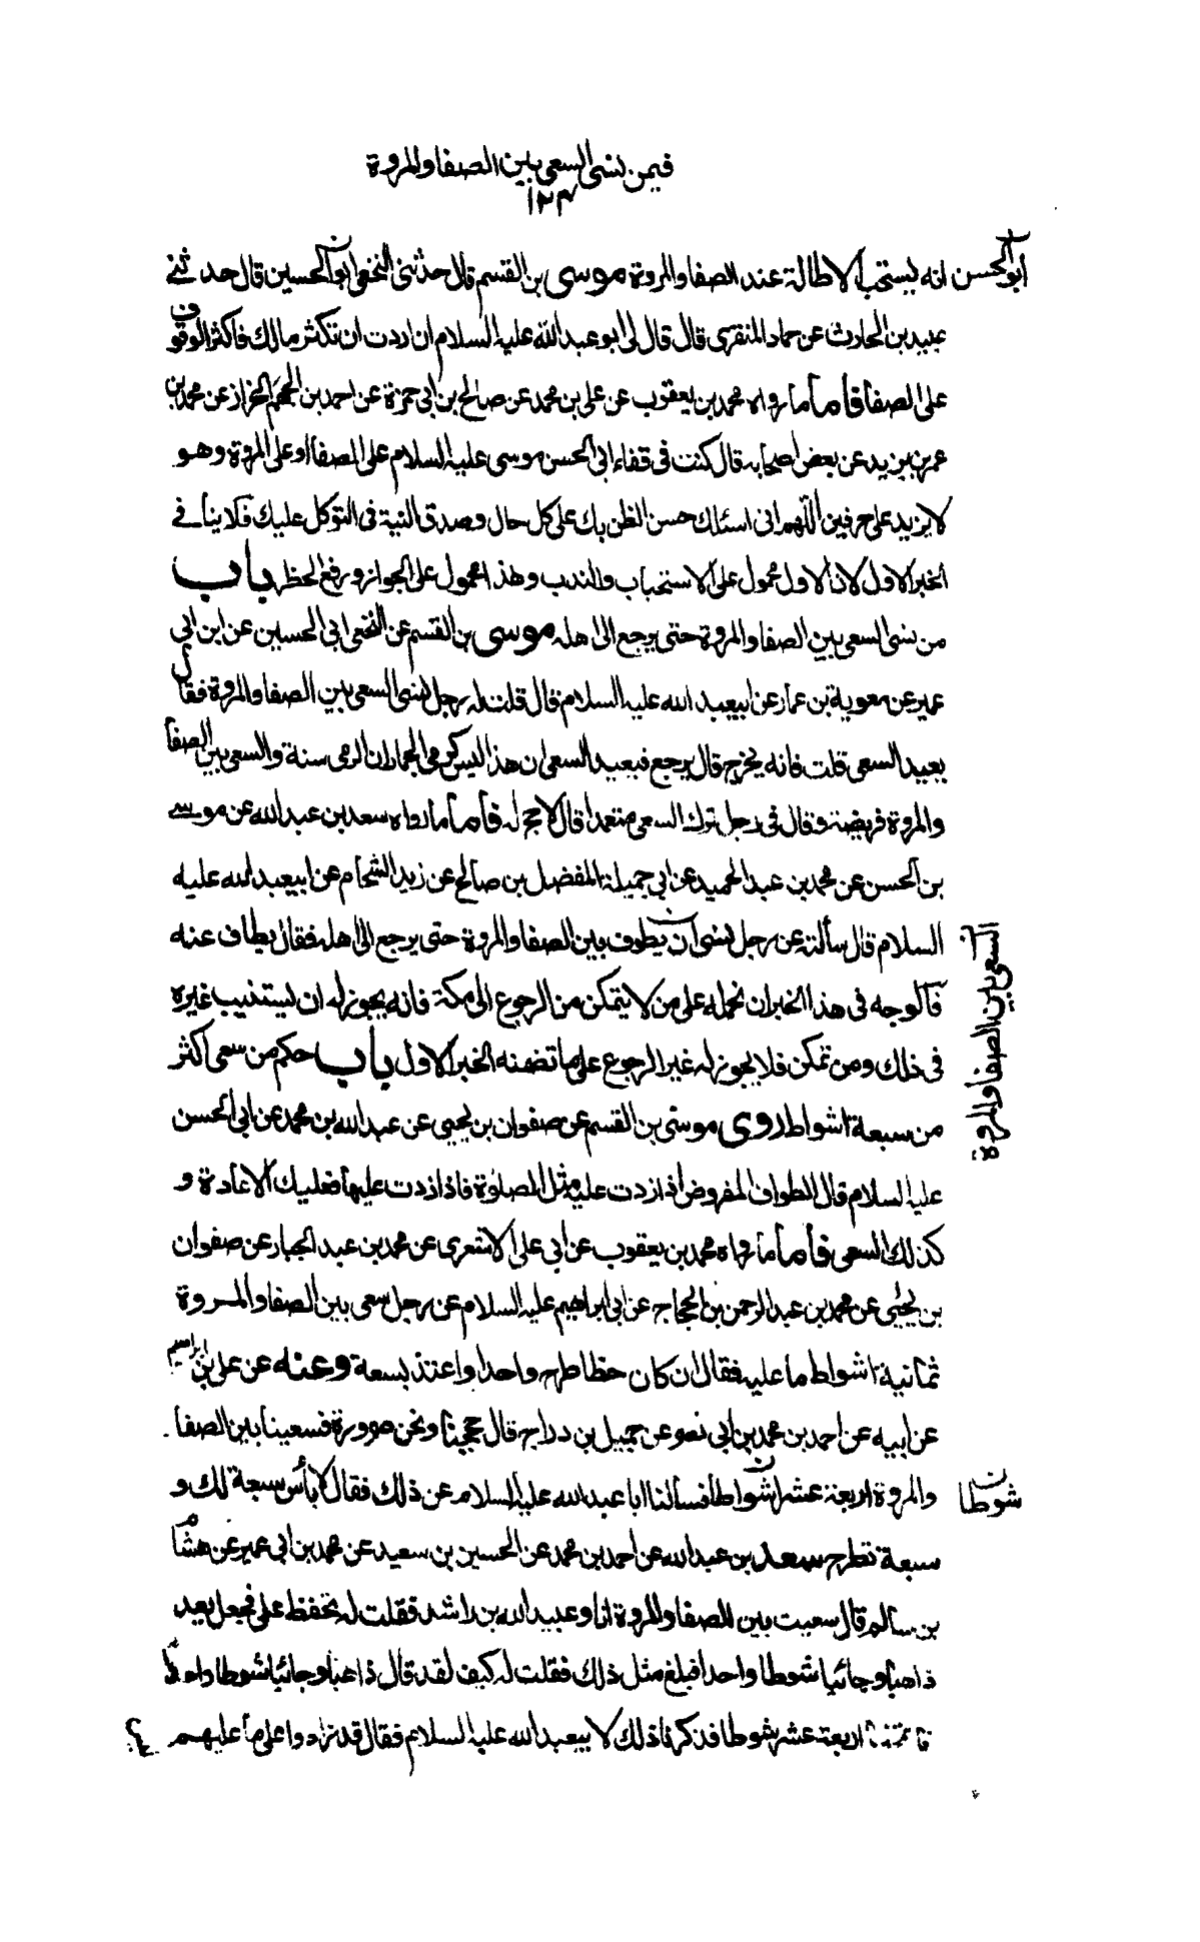 فيمن نسى السعى بين الصفا والمروة
١٢٣
انه يستحب الاطالة عند الصفا والمروة موسى بن القسم قال حدثنى النخعى ابو الحسين قال حدثنے
ابو الحسن ن
عبيد بن الحارث عن حماد المنقرى قال قال لى ابو عبد الله عليه السلام ان اردت ان تكثر مالك فاكثر الوقوف
على الصفا فأما ما رواه محمد بن يعقوب عن على بن محمد عن صالح بن ابى حمزة عن احمد بن الجهم الخزاز عن محمد بن
عمر بن يزيد عن بعض اصحابه قال كنت فى قفاء ابى الحسن موسى عليه السلام على الصفا او على المروة وهو
لا يزيد على حرفين اللهم انى اسئلك حسن الظن بك على كل حال وصدق النية فى التوكل عليك فلا ينافے
الخبر الاول لان الاول محمول على الاستحباب والندب وهذا محمول على الجواز ورفع الحظر باب
من نسى السعى بين الصفا والمروة حتى يرجع الى اهله موسى بن القسم عن النخعى ابى الحسين عن ابن ابى
عمير عن معوية بن عمار عن ابيعبد الله عليه السلام قال قلت له رجل نسى السعى بين الصفا والمروة فقال
يعيد السعى قلت فانه يخرج قال يرجع فيعيد السعى ان هذا ليس كرمى الجمار ان الرمى سنة والسعى بين الصفا
والمروة فريضة وقال فى رجل ترك السعى متعمدا قال لا حج له فأما ما رواه سعد بن عبد الله عن موسے
بن الحسن عن محمد بن عبد الحميد عن ابى جميلة المفضل بن صالح عن زيد الشحام عن ابيعبد الله عليه
السلام قال سألته عن رجل نسى ان يطوف بين الصفا والمروة حتى يرجع الى اهله فقال يطاف عنه
السعى بين الصفا والمروة
فالوجه فى هذا الخبر ان نحمله على من لا يتمكن من الرجوع الى مكة فانه يجوز له ان يستنيب غيره
فى ذلك ومن تمكن فلا يجوز له غير الرجوع على ما تضمنه الخبر الاول باب حكم من سعى اكثر
من سبعة اشواط روى موسى بن القسم عن صفوان بن يحيى عن عبد الله بن محمد عن ابى الحسن
عليه السلام قال الطواف المفروض اذا زدت عليه مثل الصلوة فاذا زدت عليها فعليك الاعادة و
كذلك السعى فأما ما رواه محمد بن يعقوب عن ابى على الاشعرى عن محمد بن عبد الجبار عن صفوان
بن يحيى عن محمد بن عبد الرحمن بن الحجاج عن ابى ابراهيم عليه السلام عن رجل سعى بين الصفا والمروة
ثمانية اشواط ما عليه فقال ان كان خطا طرح واحدا واعتد بسبعة وعنه عن على بن ابراهيم
عن ابيه عن احمد بن محمد بن ابى نصر عن جميل بن دراج قال حججنا ونحن صرورة فسعينا بين الصفا
والمروة اربعة عشر اشواطا فسألنا ابا عبد الله عليه السلام عن ذلك فقال لا بأس سبعة لك و
شوطا ن
سبعة تطرح سعد بن عبد الله عن احمد بن محمد عن الحسين بن سعيد عن محمد بن ابى عمير عن هشام
بن سالم قال سعيت بين الصفا والمروة انا وعبيد الله بن راشد فقلت له تحفظ على فجعل يعد
ذاهبا وجائيا شوطا واحدا فبلغ مثل ذلك فقلت له كيف تعد قال ذاهبا وجائيا شوطا واحدا
فاتممنا اربعة عشر شوطا فذكرنا ذلك لابيعبد الله عليه السلام فقال قد زادوا على ما عليهم